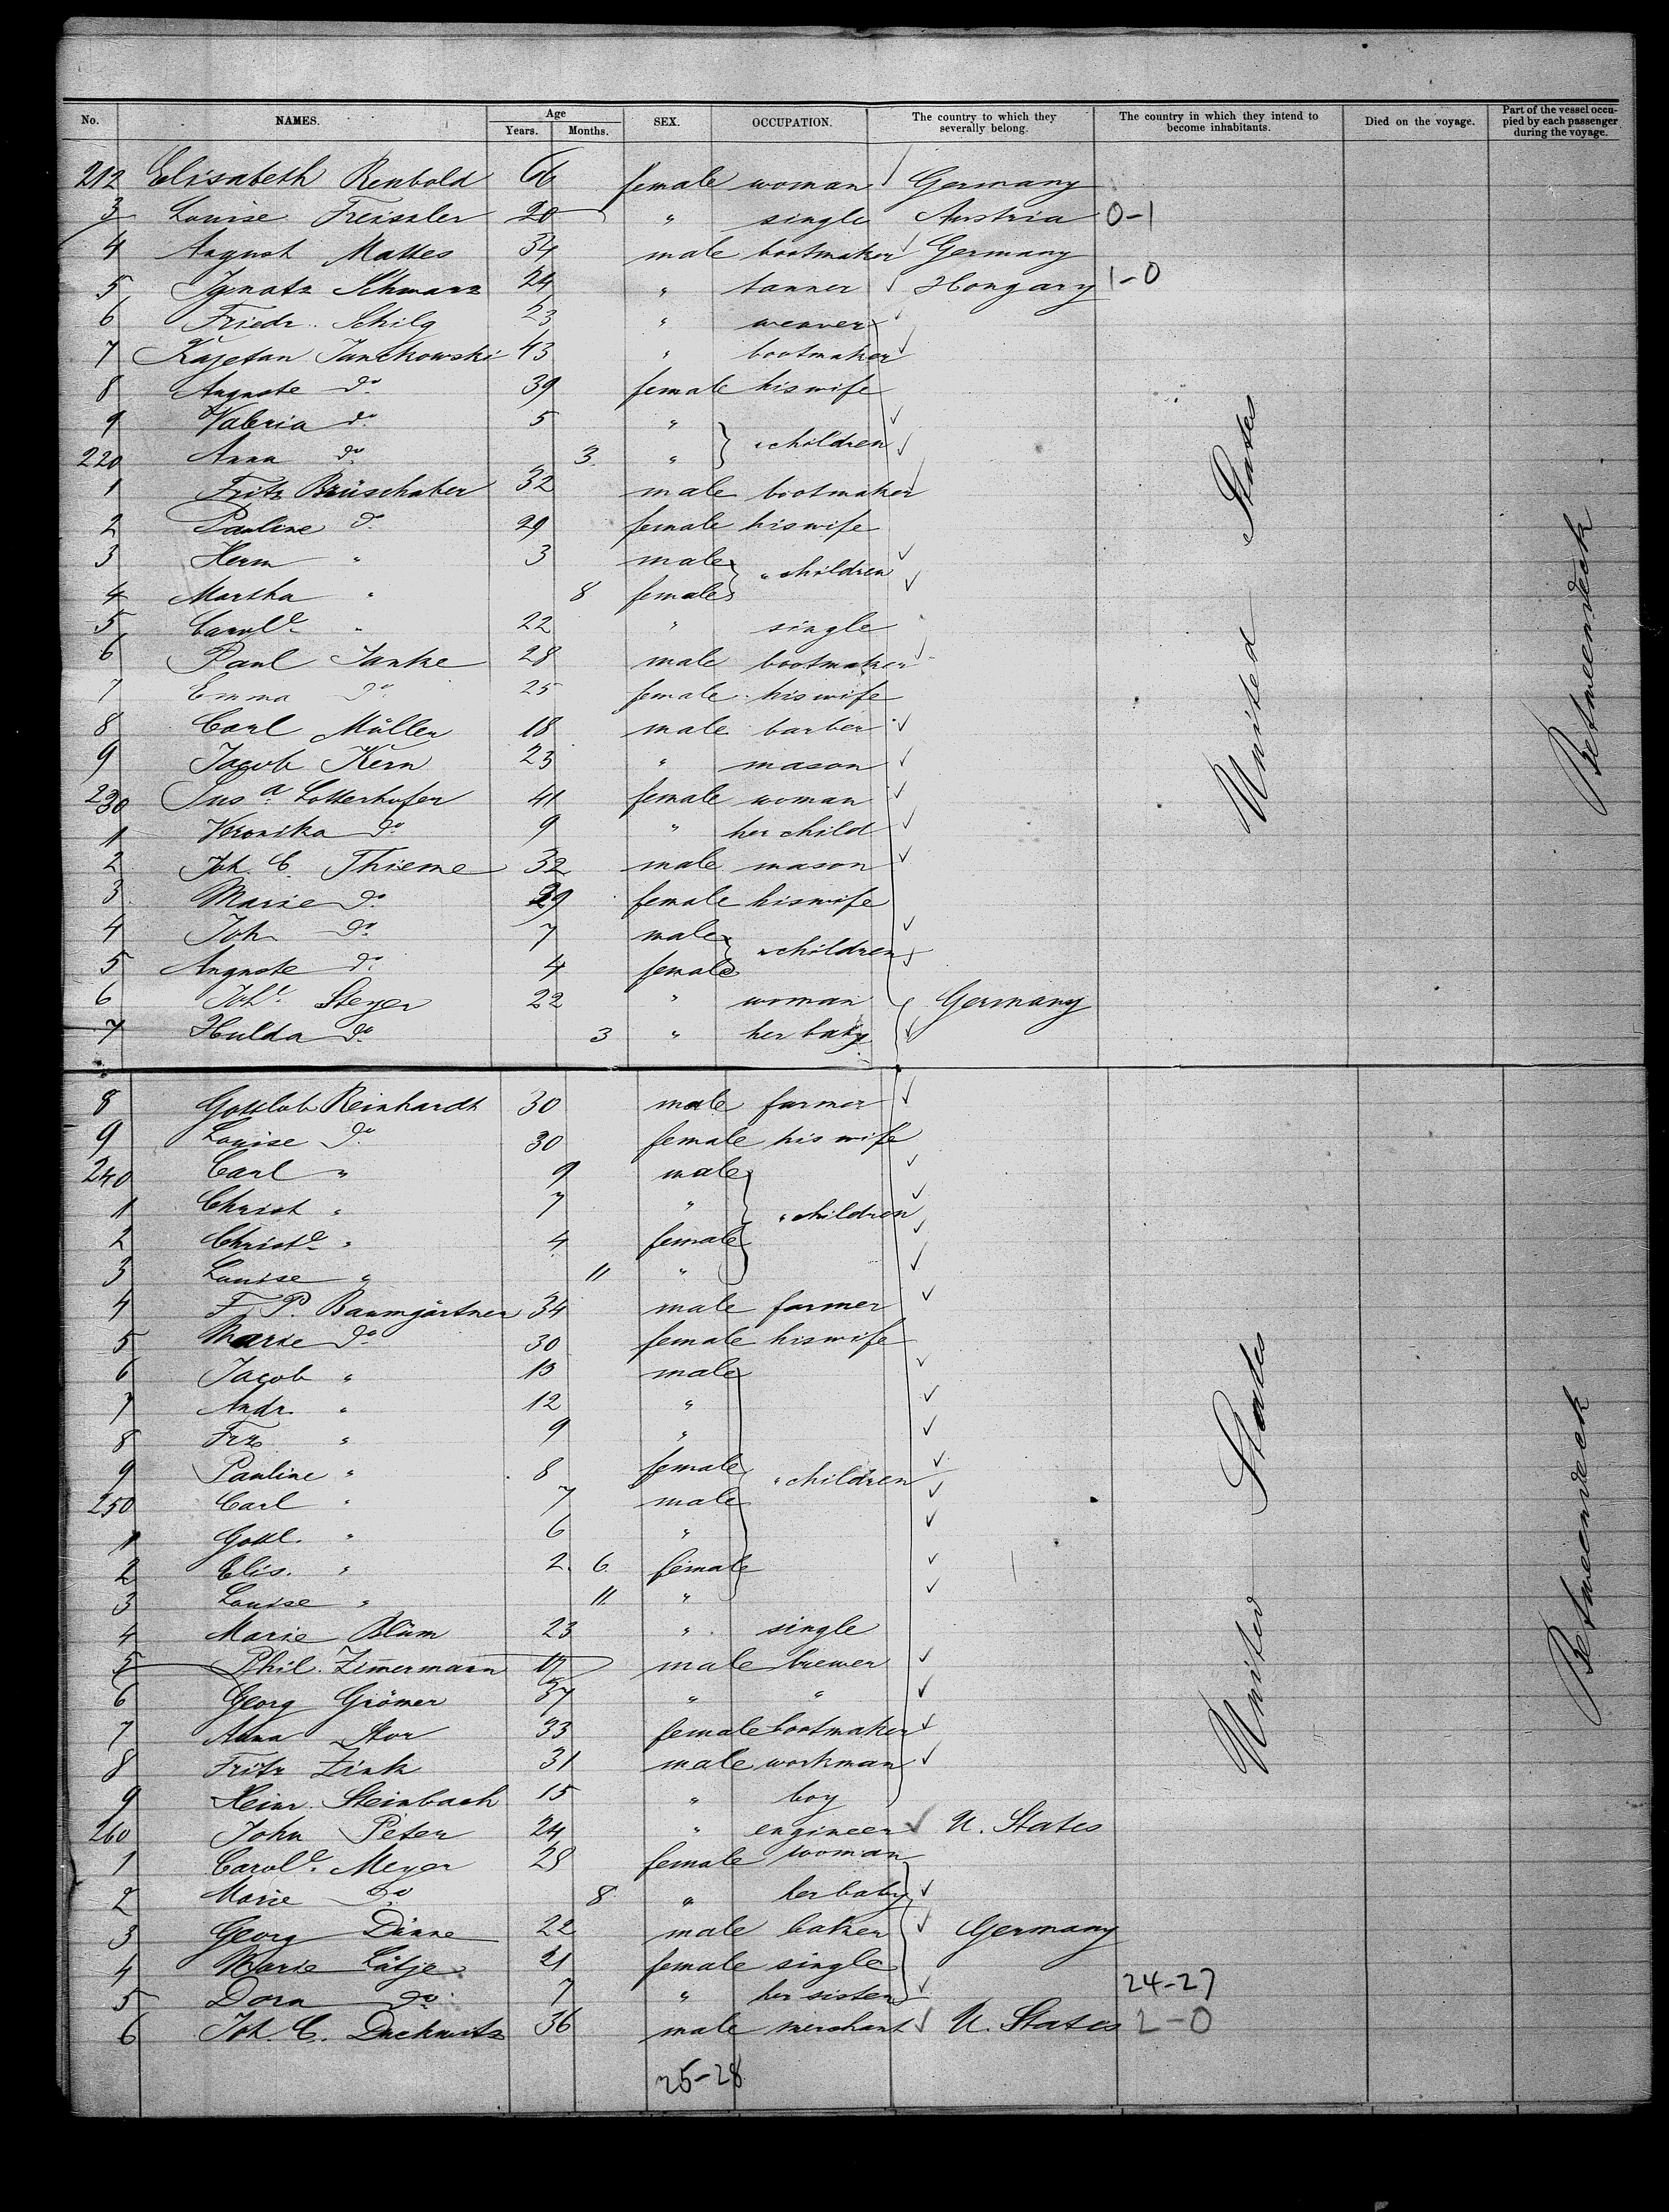 No. NAMES. Age Years. Months. SEX. OCCUPATION. The country to which they severally belong. The country in which they intend to become inhabitants. Died on the voyage. Part of the vessel occupied by each passenger during the voyage.
212 Elisabeth Renbold 66 female woman Germany
3 Louise Freissler 20 " single Austria 0-1
4 August Mattes 34 male bootmaker Germany
5 Ignatz Schwarz 24 " tanner Hongary 1-0
6 Friedr. Schilg 23 " weaver
7 Kajetan Janikowski 43 " bootmaker
8 Auguste do 39 female his wife
9 Valeria do 5 "
220 Anna do 3 " " children
1 Fritz Brüschaber 32 male bootmaker
2 Pauline do 29 female his wife
3 Herm " 3 male " children
4 Martha " 8 female
5 Carole " 22 " single
6 Paul Janke 28 male bootmaker
7 Emma do 25 female his wife
8 Carl Müller 18 male barber
9 Jacob Kern 23 " mason
230 Susa Lotterhofer 41 female woman
1 Veronika do 9 " her child
2 Joh. C. Thieme 32 male mason
3 Marie do 29 female his wife
4 Joh do 7 male " children
5 Auguste do 4 female
6 Johe Steyer 22 " woman Germany
7 Hulda do 3 " her baby
United States
Betweendeck
8 Gottlob Reinhardt 30 male farmer
9 Louise do 30 female his wife
240 Carl " 9 male
1 Christ " 7 " " children
2 Christe " 4 female
3 Louise " 11 "
4 F. P. Baumgärtner 34 male farmer
5 Marie do 30 female his wife
6 Jacob " 13 male
7 Andr. " 12 "
8 Frz " 9 "
9 Pauline " 8 female " children
250 Carl " 7 male
1 Gottl. " 6 "
2 Elis. " 2 6 female
3 Louise " 11 "
4 Marie Blüm 23 " single
5 Phil. Zimermann 17 male brewer
6 Georg Grömer 37 " "
7 Anna Stor 33 female bootmaker
8 Fritz Zink 31 male workman
9 Heinr. Steinbach 15 " boy
260 John Peter 24 " engineer U. States
1 Carole Meyer 28 female woman
2 Marie do 8 " her baby
3 Georg Dänne 22 male baker Germany
4 Marie Lätje 21 female single
5 Dora do 7 " her sister 24-27
6 Joh. C. Duckwitz 36 male merchant U. States 2-0
25-28
United States
Betweendeck